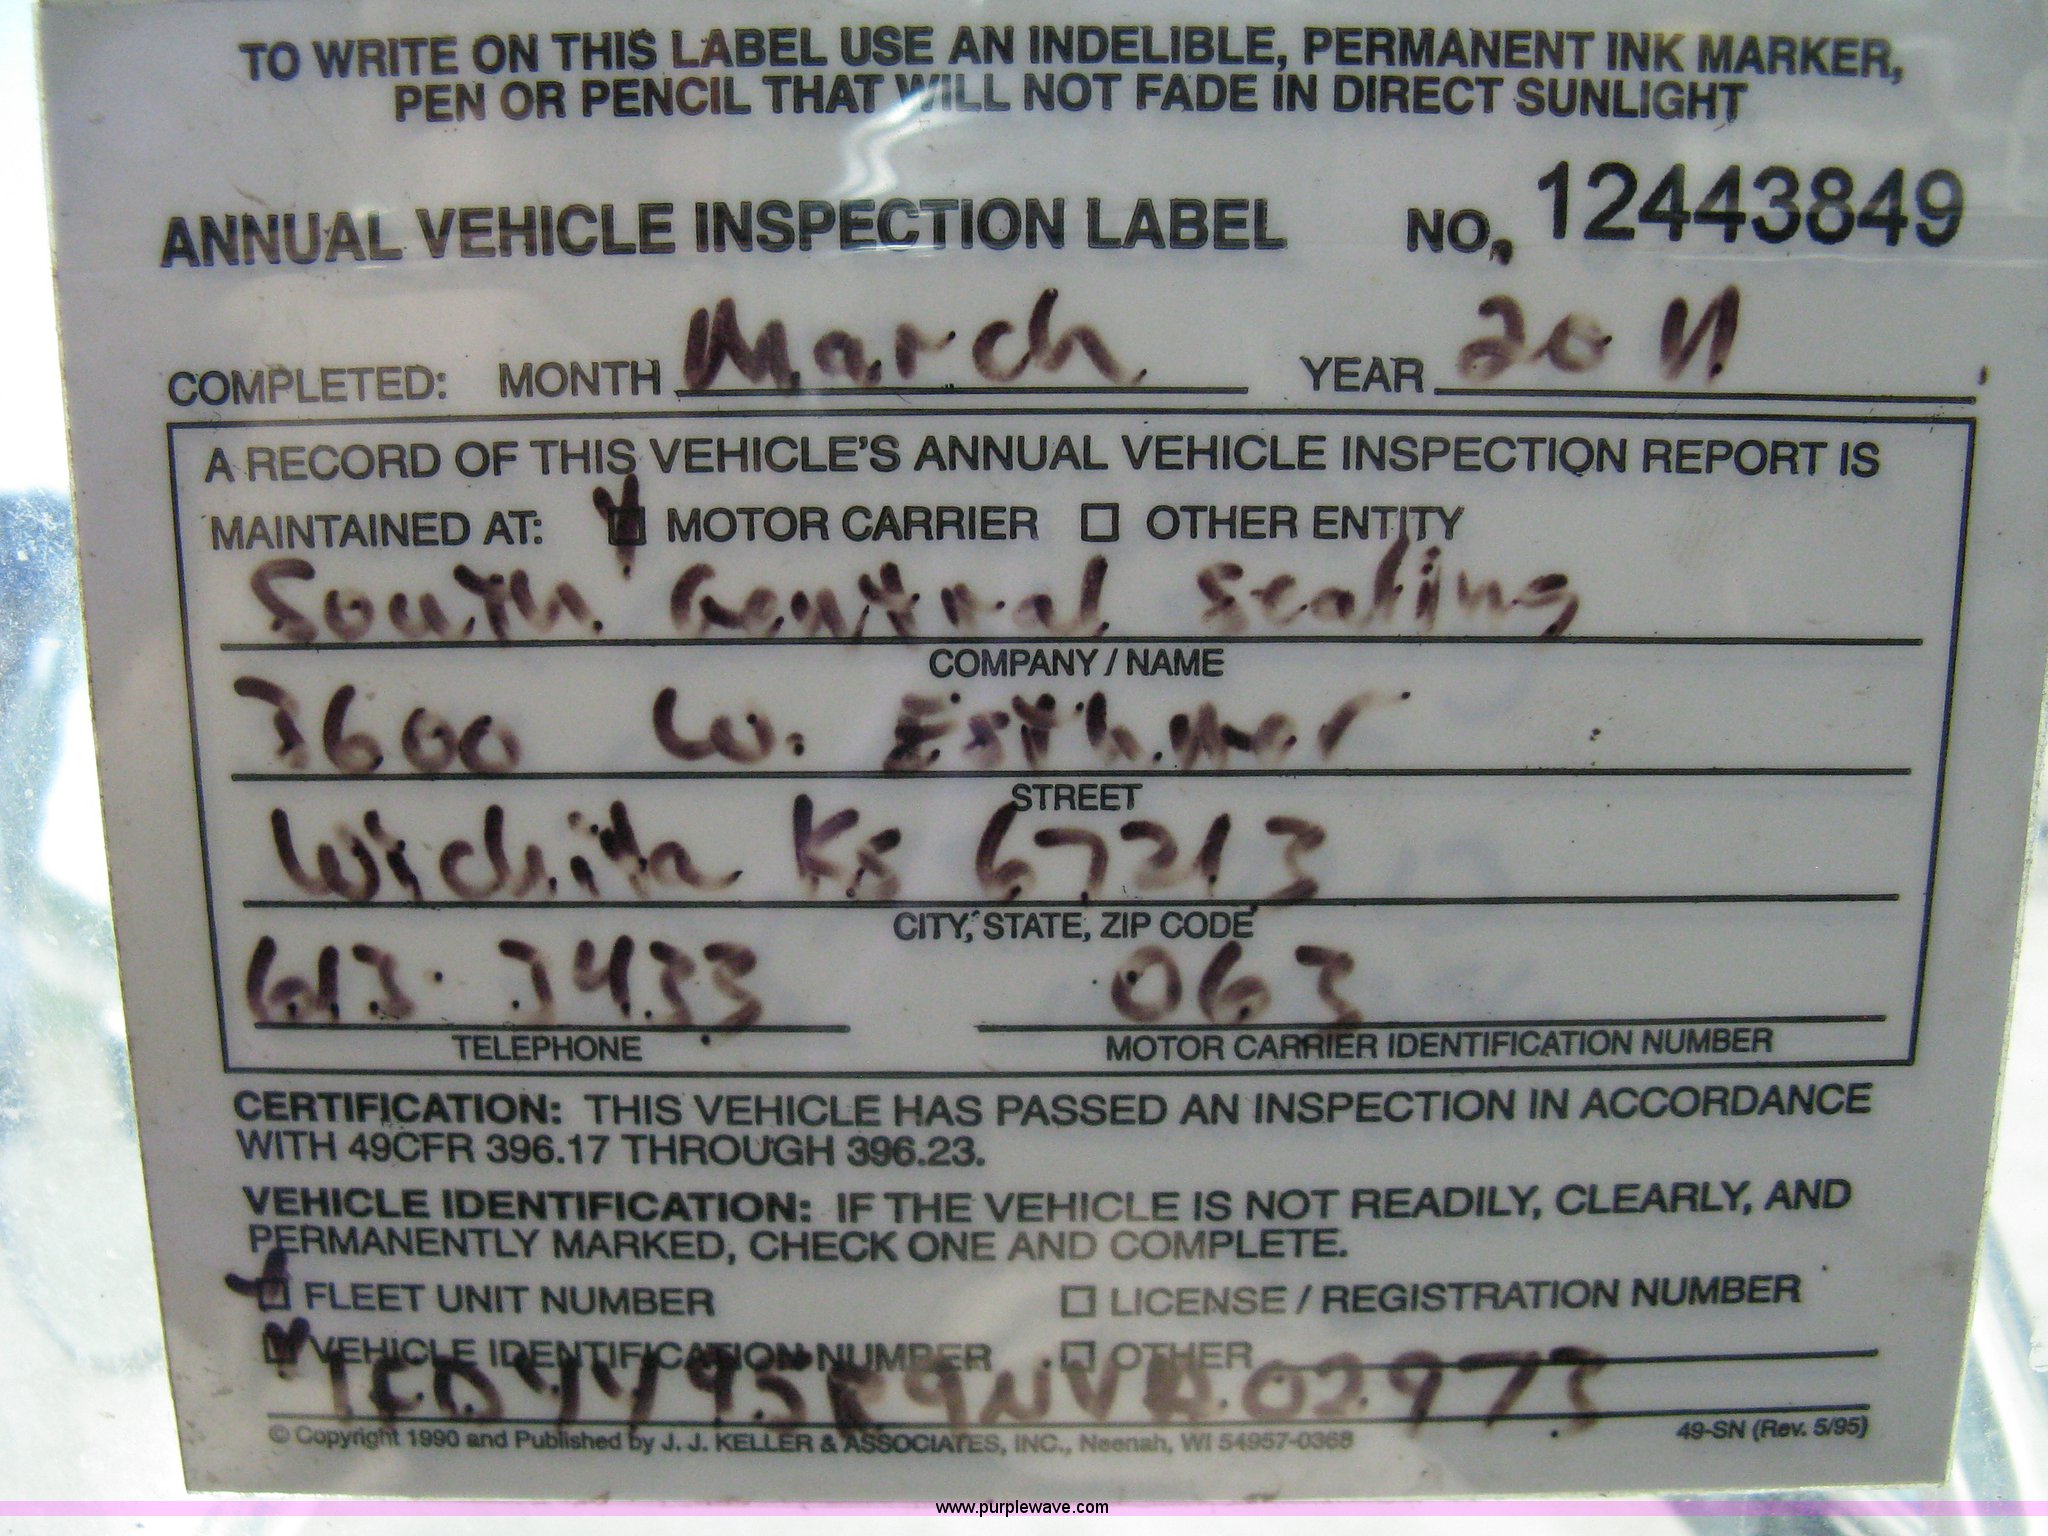 TO WRITE ON THIS LABEL USE AN INDELIBLE, PERMANENT INK MARKER,
PEN OR PENCIL THAT WILL NOT FADE IN DIRECT SUNLIGHT
ANNUAL VEHICLE INSPECTION LABEL NO. 12443849
COMPLETED: MONTH March YEAR 2011
A RECORD OF THIS VEHICLE'S ANNUAL VEHICLE INSPECTION REPORT IS
MAINTAINED AT: MOTOR CARRIER OTHER ENTITY
South Central Sealing
COMPANY / NAME
3600 W. Esthner
STREET
Wichita Ks 67213
CITY, STATE, ZIP CODE
613-3433 063
TELEPHONE MOTOR CARRIER IDENTIFICATION NUMBER
CERTIFICATION: THIS VEHICLE HAS PASSED AN INSPECTION IN ACCORDANCE
WITH 49CFR 396.17 THROUGH 396.23.
VEHICLE IDENTIFICATION: IF THE VEHICLE IS NOT READILY, CLEARLY, AND
PERMANENTLY MARKED, CHECK ONE AND COMPLETE.
FLEET UNIT NUMBER LICENSE / REGISTRATION NUMBER
VEHICLE IDENTIFICATION NUMBER OTHER
© Copyright 1990 and Published by J. J. KELLER & ASSOCIATES, INC., Neenah, WI 54957-0368 49-SN (Rev. 5/95)
www.purplewave.com